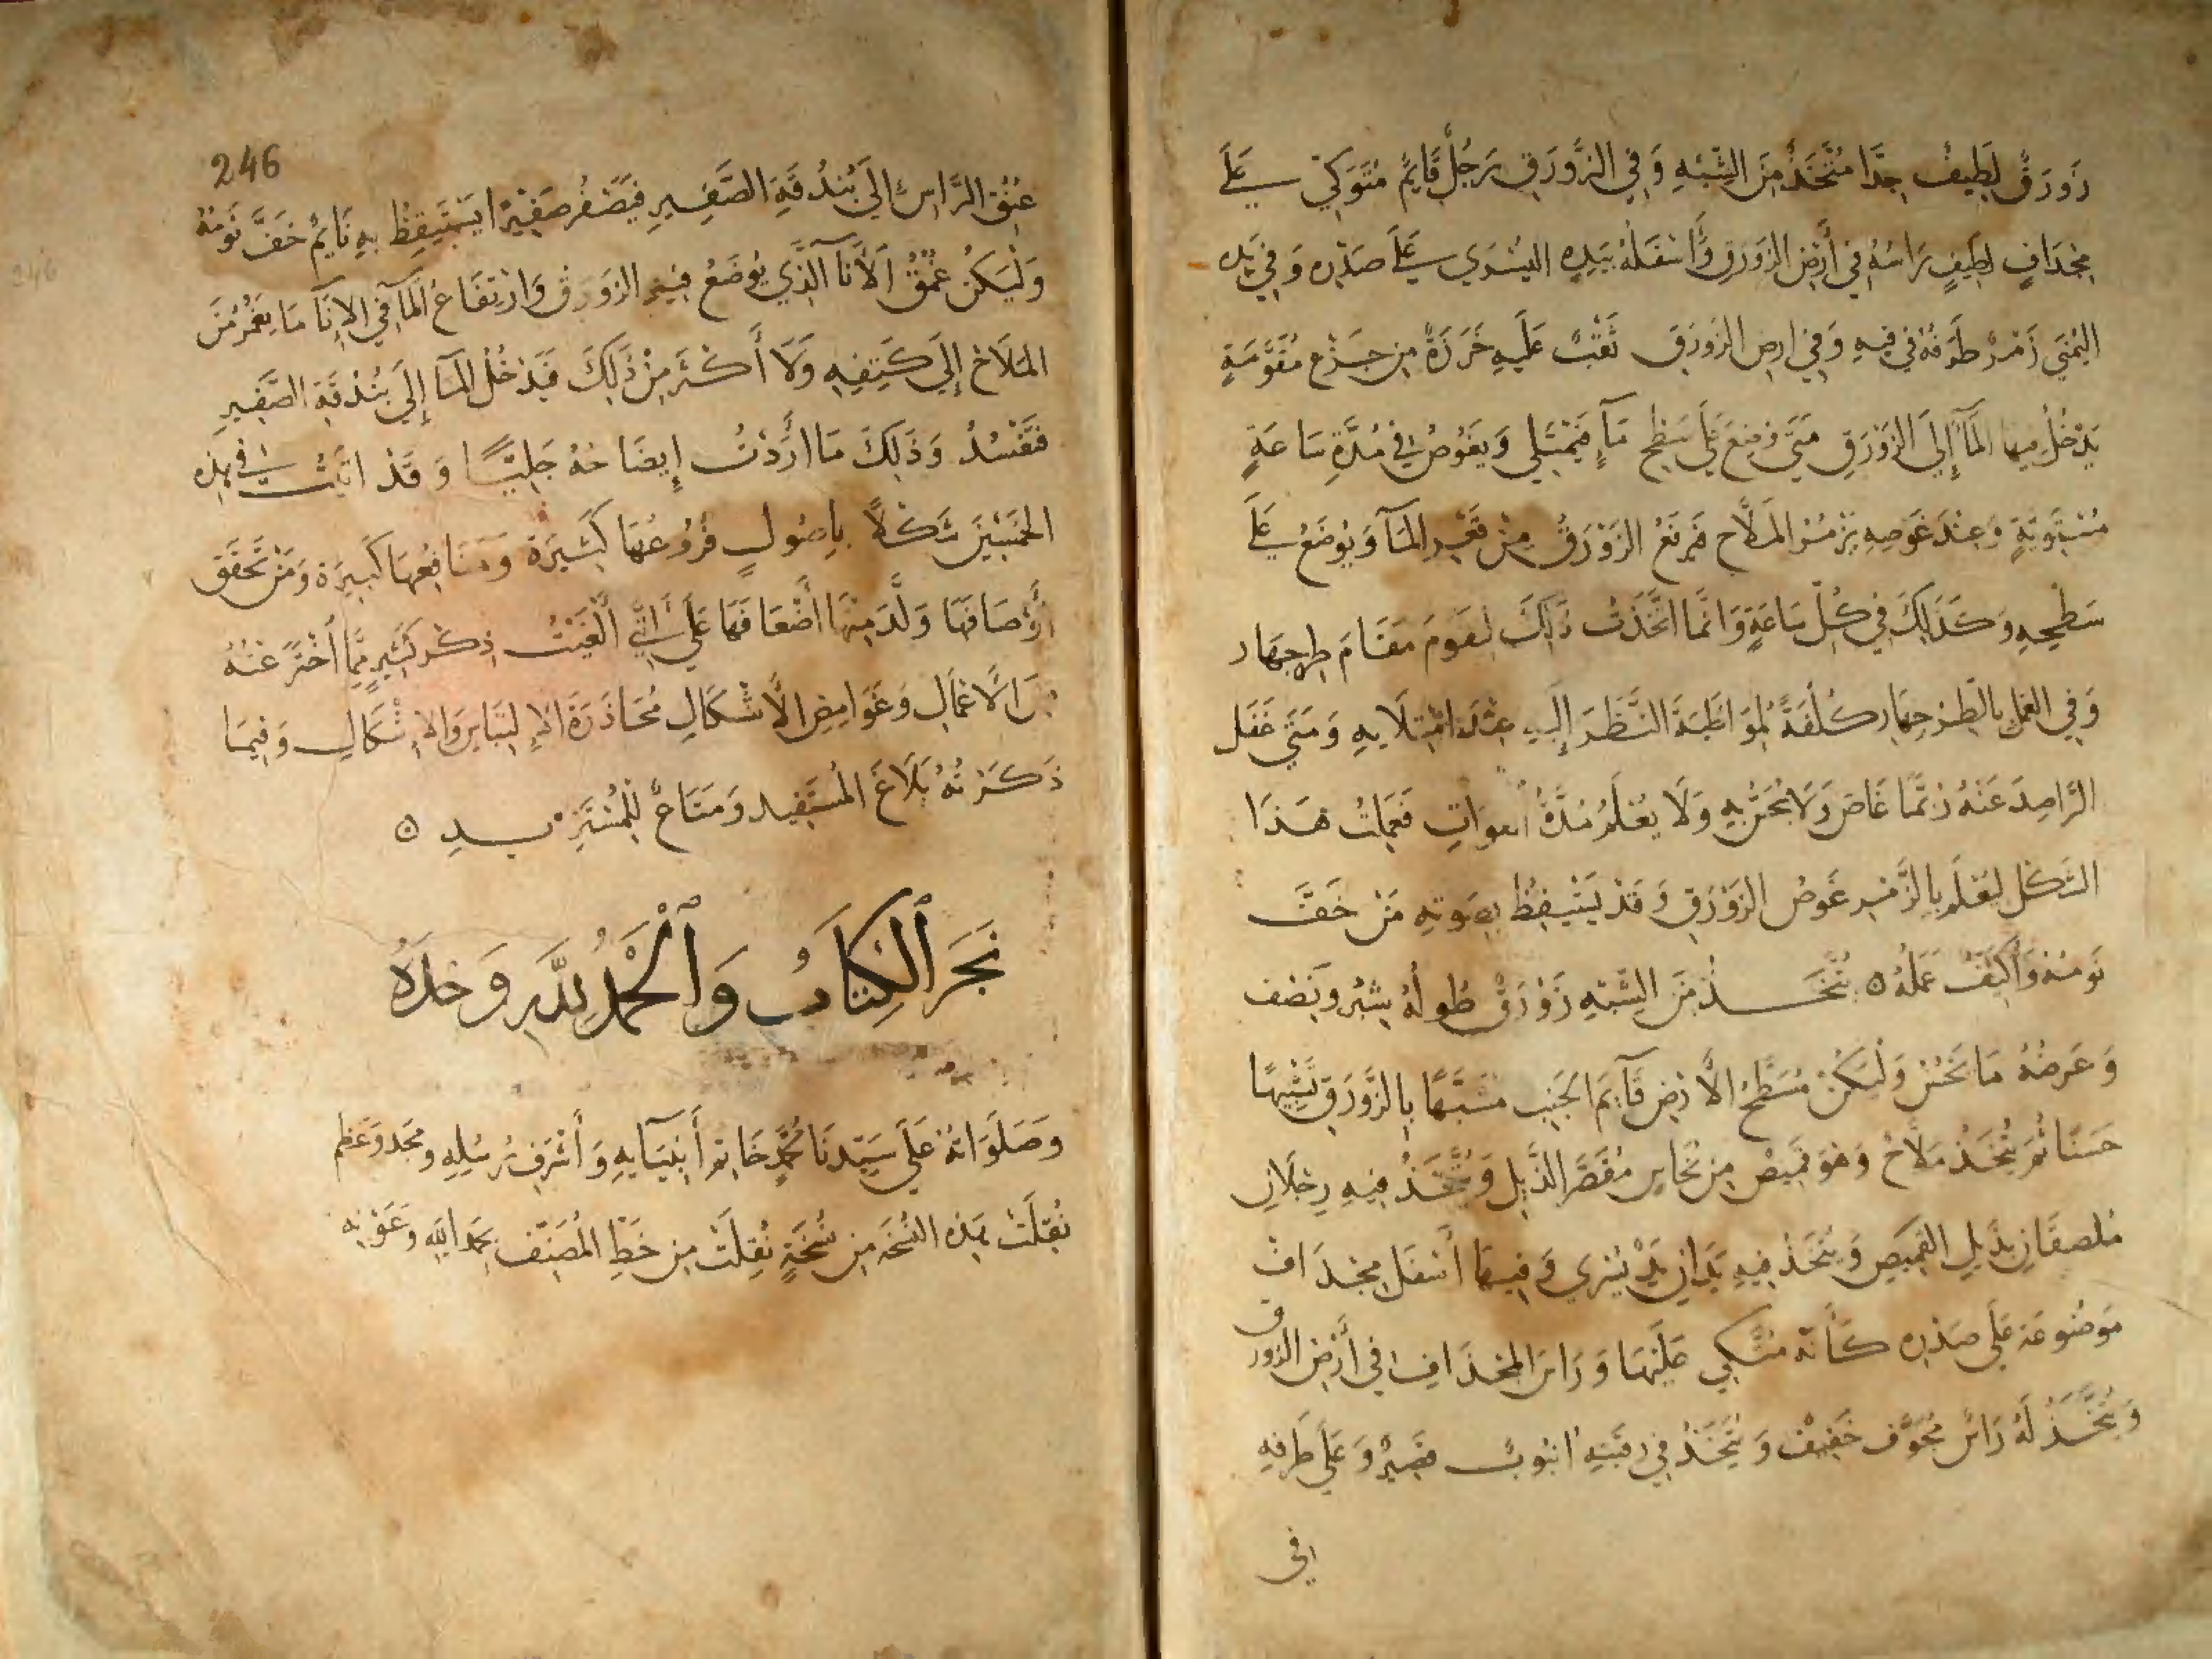 زورق لطيف جدا متخذ من الشبه وفي الزورق رجل قايم متوكي على
مجداف لطيف راسه في أرض الزورق وأسفله بيده اليسرى على صدره وفي يده
اليمنى زمر طرفه في فيه وفي ارض الزورق ثقب عليه خرزة من جزع مقومة
يدخل منها المآ إلى الزورق متى وضع على سطح مآء فيمتلى ويغوص في مدة ساعة
مستوية وعند غوصه يزمر الملاح فيرفع الزورق من قعر المآ ويوضع على
سطحه وكذلك في كل ساعة وانما اتخذت ذلك ليقوم مقام طرجهار
وفي العمل بالطرجهار كلفة لمواظبة النظر إليه عند امتلايه ومتى غفل
الراصد عنه ربما غاص ولا يحس به ولا يعلم مدة الفوات فعملت هذا
الشكل ليعلم بالزمر غوص الزورق وقد يستيقظ بصوته من خف
نومه وأكيف عمله ه يتخذ من الشبه زورق طوله شبر ونصف
وعرضه ما يحسن وليكن مسطح الأرض قآيم الجنب مشبها بالزورق تشبيها
حسنا ثم يتخذ ملاح وهو قميص من نحاس مقصر الذيل ويتخذ فيه رجلان
ملصقان بذيل القميص ويتخذ فيه يدان يد يسرى وفيها أسفل مجداف
موضوعة على صدره كأنه متكي عليها وراس المجداف في أرض الزورق
ويتخذ له راس مجوف خفيف ويتخذ في رقبته انبوب قصير وعلى طرفه
في
246
عنق الراس الى بندقة الصفير فيصفر صفيرا يستيقظ به نايم خف نومه
وليكن عمق الانآ الذي يوضع فيه الزورق وارتفاع المآ في الانآ ما يغمر من
الملاح إلى كتفيه ولا أكثر من ذلك فيدخل المآ إلى بندقة الصفير
فتفسد وذلك ما أردت إيضاحه جليا وقد اتيت في هذه
الخمسين شكلا باصول فروعها كثيرة ومنافعها كبيرة ومن تحقق
أوصافها ولد منها أضعافها على أنني ألغيت ذكر كثير مما أخترعته
من الأعمال وغوامض الأشكال محاذرة الالتباس والاشكال وفيما
ذكرته بلاغ المستفيد ومتاع للمستزيد ه
نجز الكتاب والحمد لله وحده
وصلواته على سيدنا محمد خاتم أنبيآيه وأشرف رسله ومجد وعظم
نقلت هذه النسخة من نسخة نقلت من خط المصنف بحمد الله وعونه